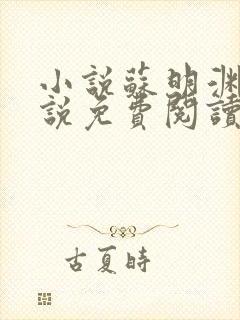 小說蘇明淵
說免費閱讀
古夏時